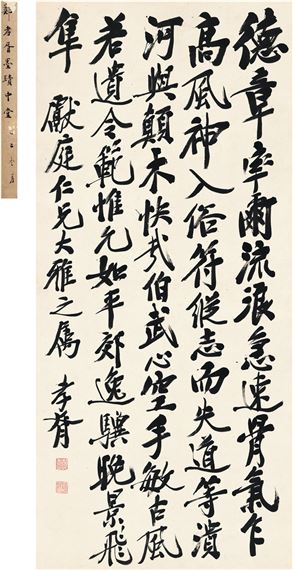 德章率爾流浪急速骨氣乍
高風神入俗符縱志而失道等潰
河與顛木快哉伯武心空手敏古風
若遺令範惟允如平郊逸驥晚景飛
隼 獻庭仁兄大雅之屬 孝胥
鄭孝胥墨蹟中堂